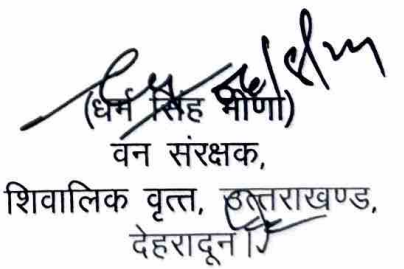 (धर्म सिंह मीणा)
वन संरक्षक,
शिवालिक वृत्त, उत्तराखण्ड,
देहरादून।